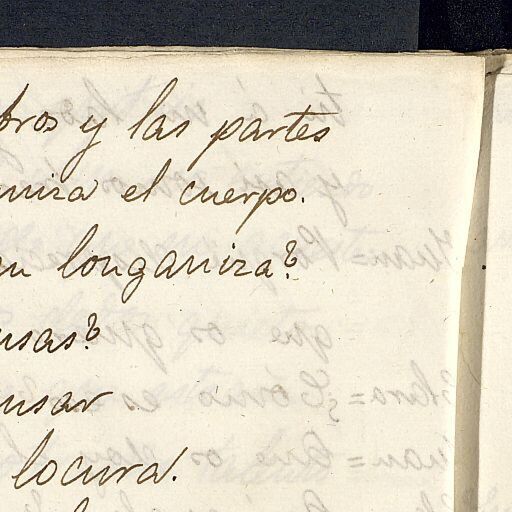 bros y las partes
niza el cuerpo.
longaniza?
usas?
usar
locura.